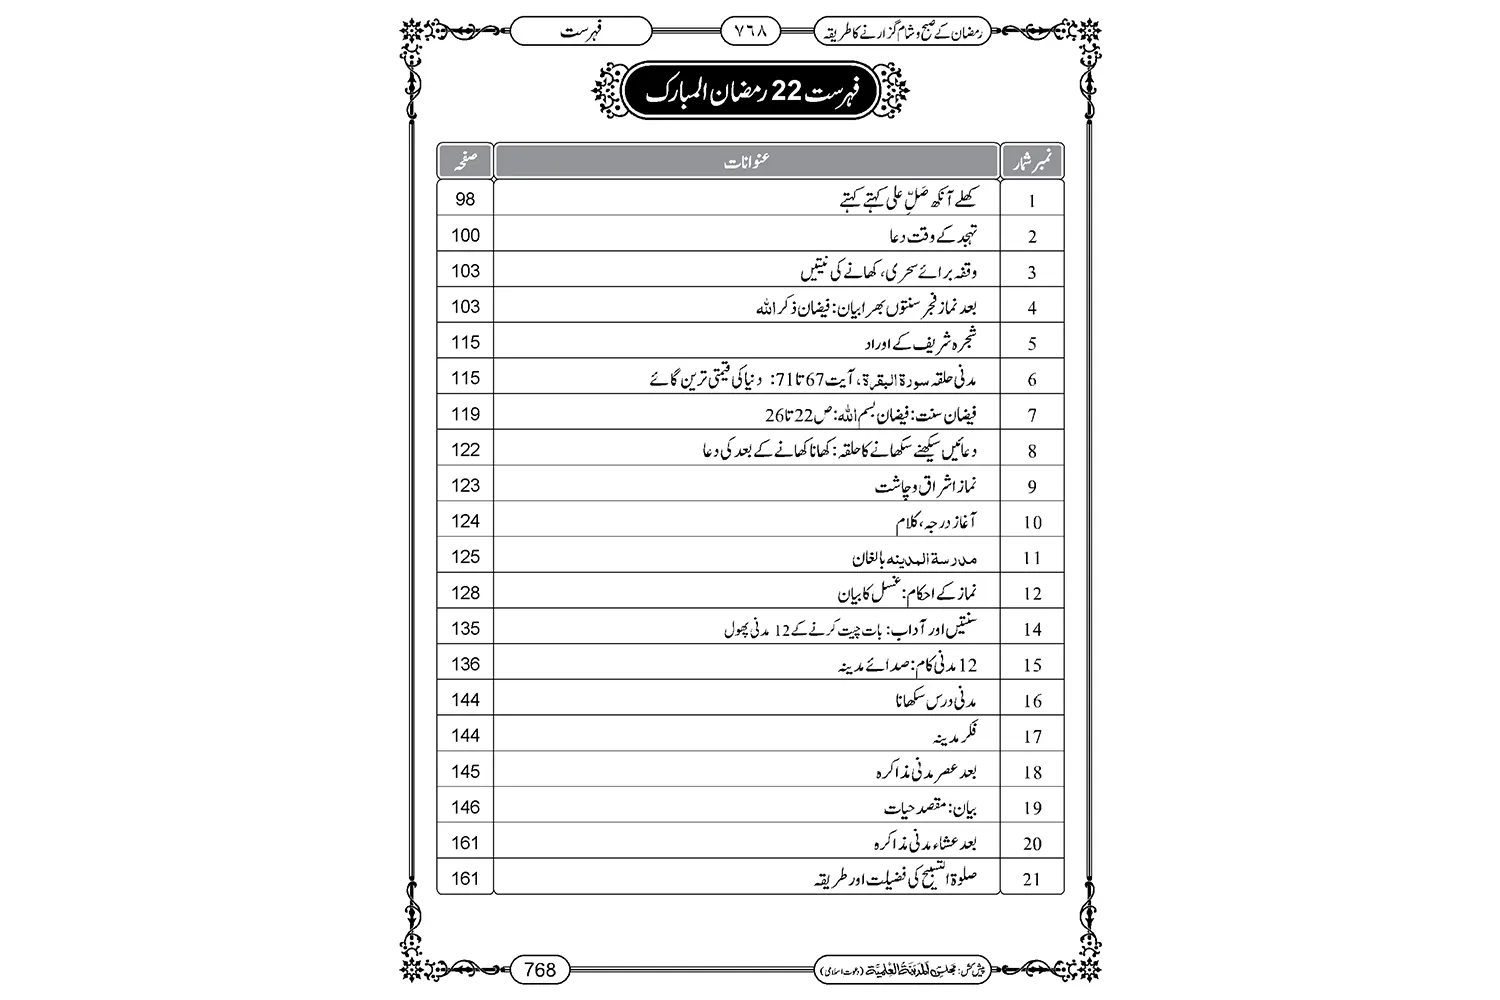 رمضان کے صبح و شام گزارنے کا طریقہ ۷٦۸ فہرست
فہرست 22 رمضان المبارک
نمبر شمار عنوانات صفحہ
1 کھلے آنکھ صَلِّ علی کہتے کہتے 98
2 تہجد کے وقت دعا 100
3 وقفہ برائے سحری، کھانے کی نیتیں 103
4 بعد نماز فجر سنتوں بھرا بیان: فیضان ذکر اللہ 103
5 شجرہ شریف کے اوراد 115
6 مدنی حلقہ سورة البقرة، آیت 67 تا 71: دنیا کی قیمتی ترین گائے 115
7 فیضان سنت: فیضان بسم اللہ: ص 22 تا 26 119
8 دعائیں سیکھنے سکھانے کا حلقہ: کھانا کھانے کے بعد کی دعا 122
9 نماز اشراق و چاشت 123
10 آغاز درجہ، کلام 124
11 مدرسة المدینہ بالغان 125
12 نماز کے احکام: غسل کا بیان 128
14 سنتیں اور آداب: بات چیت کرنے کے 12 مدنی پھول 135
15 12 مدنی کام: صدائے مدینہ 136
16 مدنی درس سکھانا 144
17 فکر مدینہ 144
18 بعد عصر مدنی مذاکرہ 145
19 بیان: مقصد حیات 146
20 بعد عشاء مدنی مذاکرہ 161
21 صلوة التسبیح کی فضیلت اور طریقہ 161
پیش کش: مجلس المدینۃ العلمیۃ (دعوت اسلامی) 768